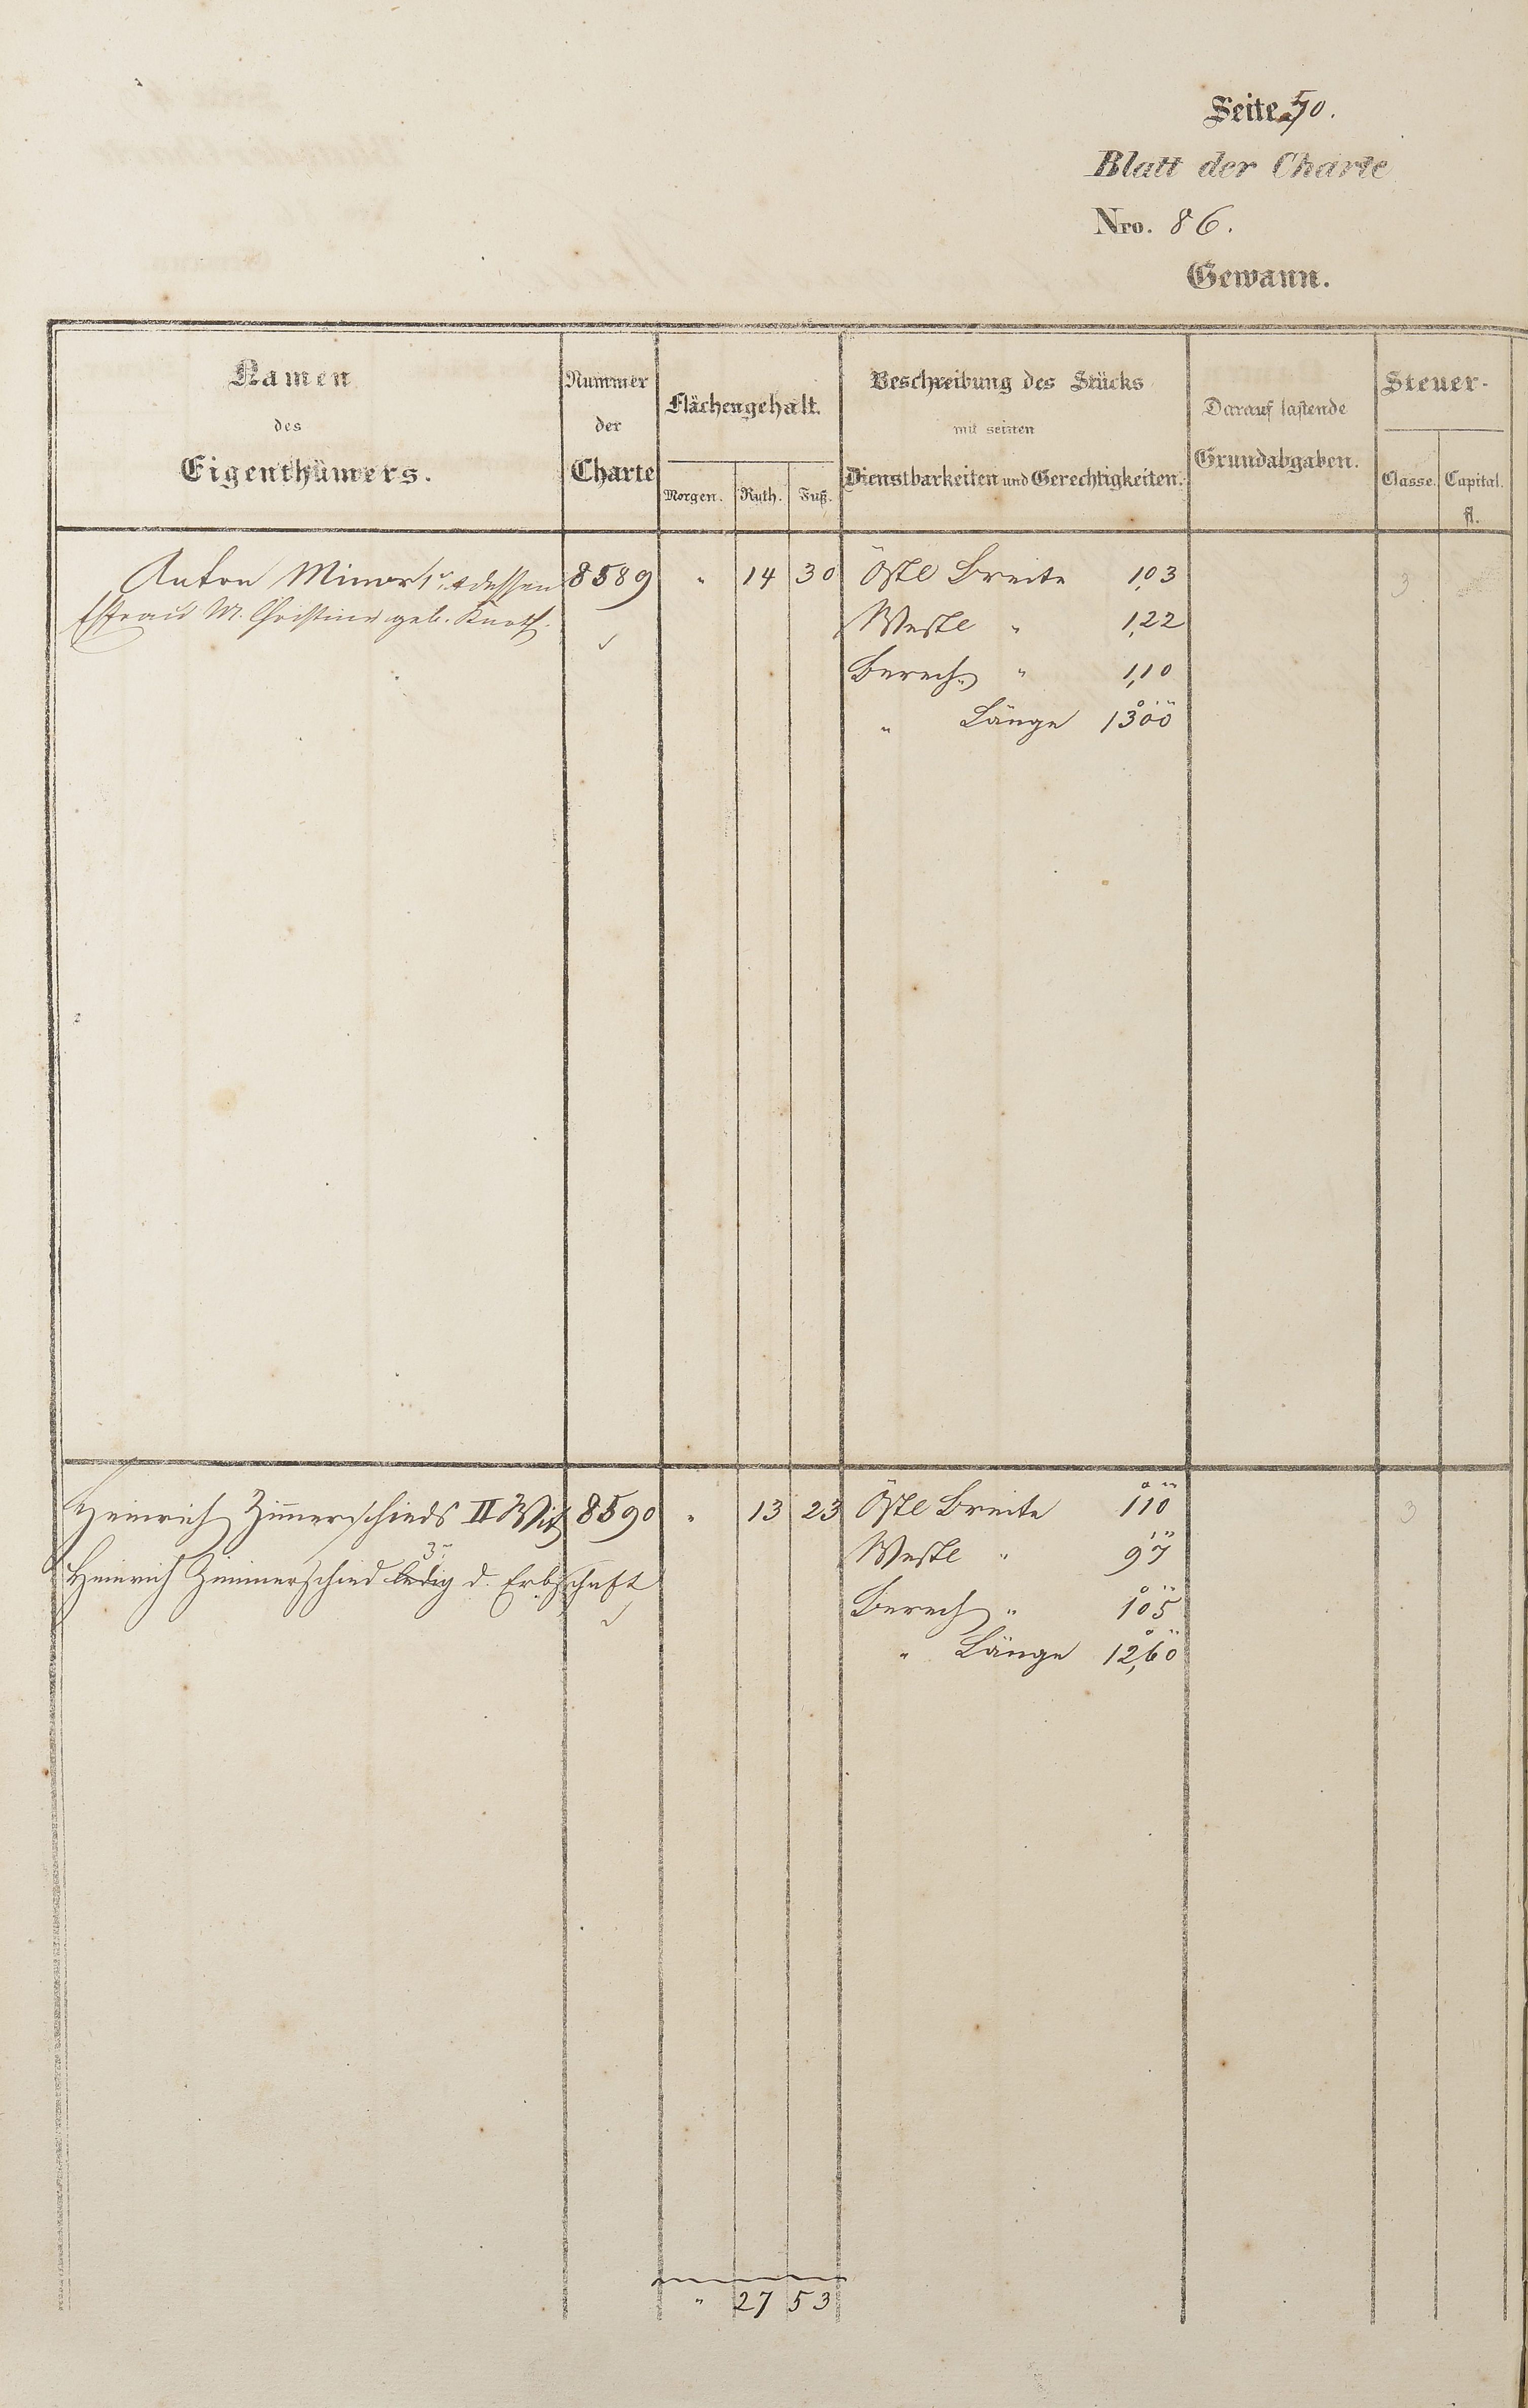 Seite 50.
Blatt der Charte
Nro. 86.
Gewann.
Namen des Eigenthümers.
Nummer der Charte
Flächengehalt.
Morgen. Ruth. Fuß.
Beschreibung des Stücks mit seinen Dienstbarkeiten und Gerechtigkeiten.
Darauf lastende Grundabgaben.
Steuer-
Classe. Capital. fl.
Anton Minor 1r. & dessen 8589 " 14 30 Östl Breite 1,03 3
Ehfrau M. Christine geb. Knoth. Westl " 1,22
Berech " 1,10
" Länge 1300
Heinrich Zimmerschieds II Wit 8590 " 13 23 Östl Breite 110 3
Westl " 97
Heinrich Zimmerschied ledig 3r d. Erbschaft
Berech " 105
" Länge 12,60
" 27 53